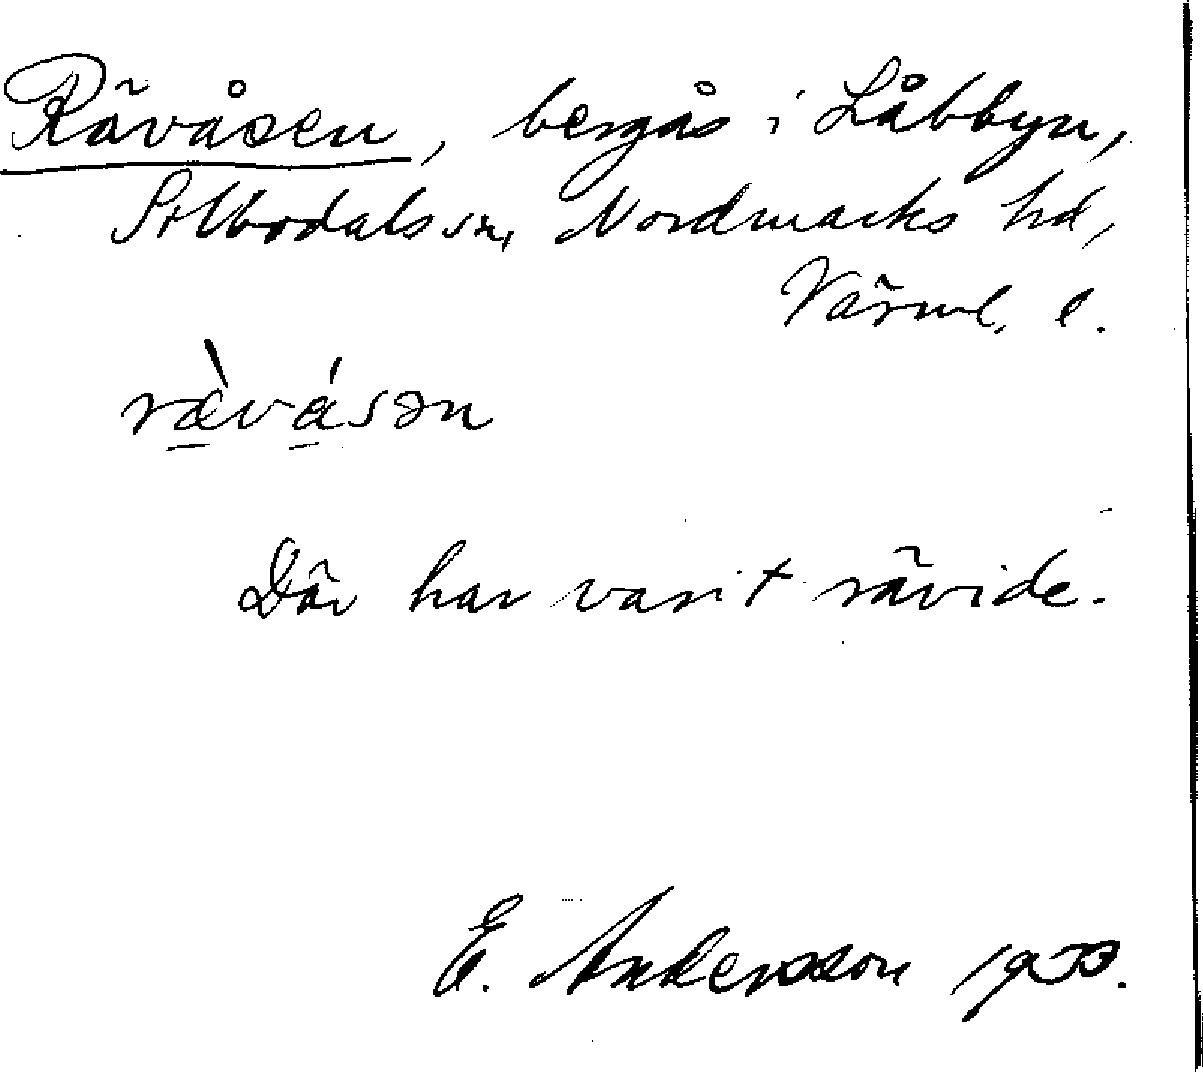 Rävåsen, bergås i Låbbyn,
Silbodals sn, Nordmarks hd,
Värml. l.
ræ̀vásən
Där har varit rävide.
E. Andersson 1933.